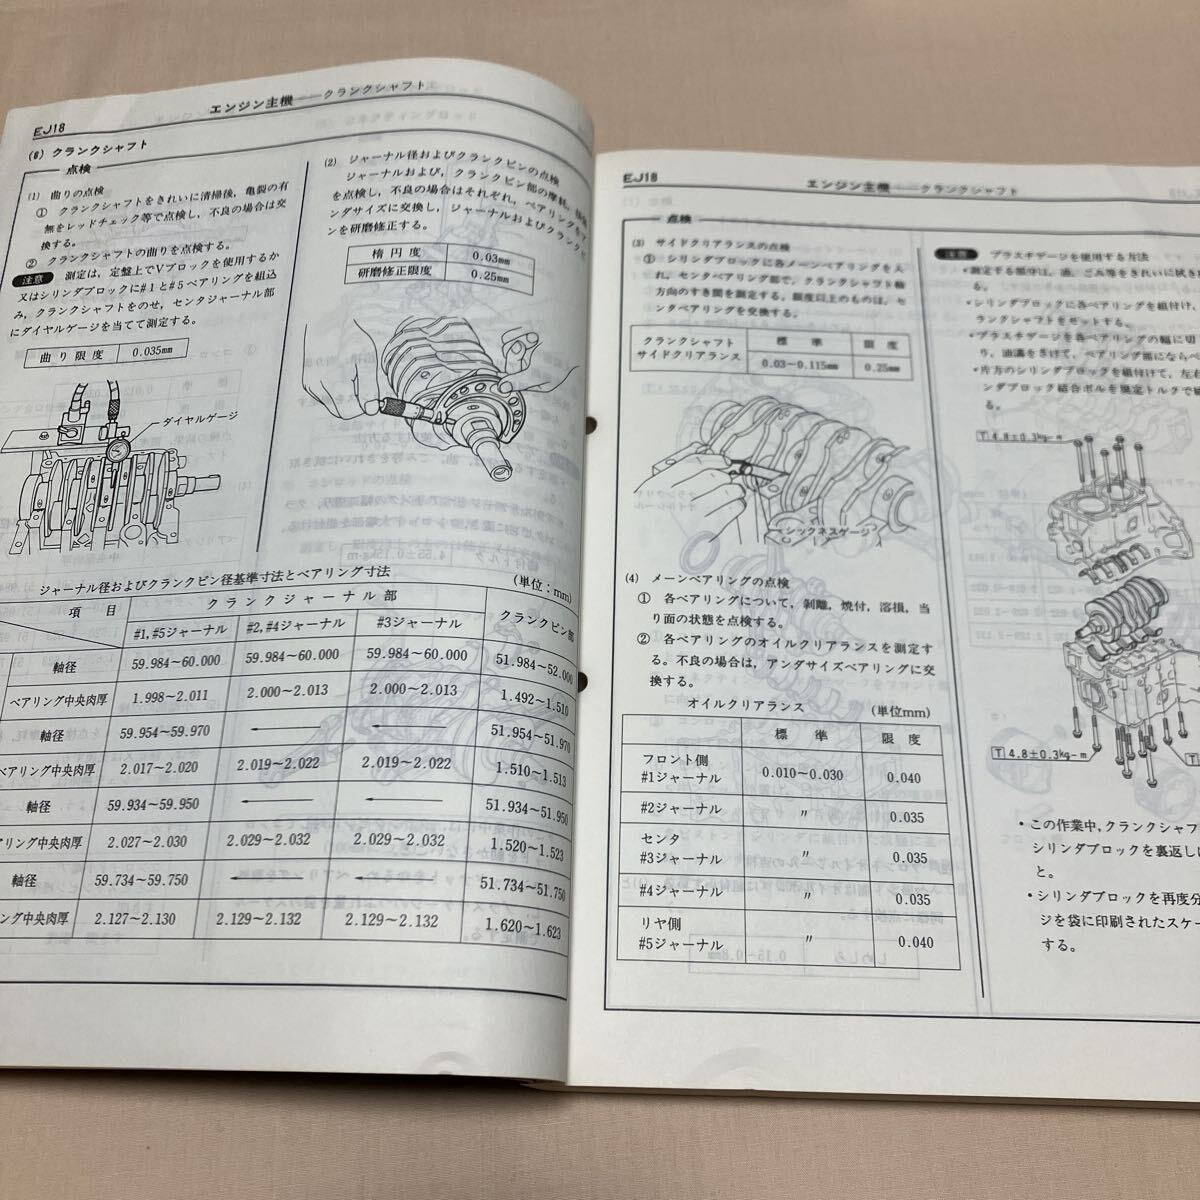 エンジン主機——クランクシャフト
EJ18
(6) クランクシャフト
点検
(1) 曲りの点検
① クランクシャフトをきれいに清掃後，亀裂の有
無をレッドチェック等で点検し，不良の場合は交
換する。
② クランクシャフトの曲りを点検する。
注意 測定は，定盤上でVブロックを使用するか
又はシリンダブロックに#1と#5ベアリングを組込
み，クランクシャフトをのせ，センタジャーナル部
にダイヤルゲージを当てて測定する。
曲り限度 0.035mm
ダイヤルゲージ
(2) ジャーナル径およびクランクピンの点検
ジャーナルおよび，クランクピン部の摩耗，
を点検し，不良の場合はそれぞれ，ベアリングをア
ンダサイズに交換し，ジャーナルおよびクランクピ
ンを研磨修正する。
楕円度 0.03mm
研磨修正限度 0.25mm
ジャーナル径およびクランクピン径基準寸法とベアリング寸法
(単位：mm)
項目 クランクジャーナル部 クランクピン部
#1, #5ジャーナル #2, #4ジャーナル #3ジャーナル
軸径 59.984～60.000 59.984～60.000 59.984～60.000 51.984～52.000
ベアリング中央肉厚 1.998～2.011 2.000～2.013 2.000～2.013 1.492～1.510
軸径 59.954～59.970 ← ← 51.954～51.970
ベアリング中央肉厚 2.017～2.020 2.019～2.022 2.019～2.022 1.510～1.513
軸径 59.934～59.950 ← ← 51.934～51.950
アリング中央肉厚 2.027～2.030 2.029～2.032 2.029～2.032 1.520～1.523
軸径 59.734～59.750 ← ← 51.734～51.750
ング中央肉厚 2.127～2.130 2.129～2.132 2.129～2.132 1.620～1.623
EJ18
エンジン主機——クランクシャフト
点検
(3) サイドクリアランスの点検
① シリンダブロックに各メーンベアリングを入
れ，センタベアリング部で，クランクシャフト軸
方向のすき間を測定する。限度以上のものは，セ
ンタベアリングを交換する。
クランクシャフト
サイドクリアランス
標準 限度
0.03～0.115mm 0.25mm
シックネスゲージ
(4) メーンベアリングの点検
① 各ベアリングについて，剥離，焼付，溶損，当
り面の状態を点検する。
② 各ベアリングのオイルクリアランスを測定す
る。不良の場合は，アンダサイズベアリングに交
換する。
オイルクリアランス (単位mm)
標準 限度
フロント側
#1ジャーナル 0.010～0.030 0.040
#2ジャーナル 〃 0.035
センタ
#3ジャーナル 〃 0.035
#4ジャーナル 〃 0.035
リヤ側
#5ジャーナル 〃 0.040
注意 プラスチゲージを使用する方法
・測定する部位は，油，ごみ等をきれいに拭き
る。
・シリンダブロックに各ベアリングを組付け，
ランクシャフトをセットする。
・プラスチゲージを各ベアリングの幅に切
り，油溝をさけて，ベアリング部にならべ
・片方のシリンダブロックを組付けて，左右
ンダブロック結合ボルを規定トルクで
る。
T 4.8±0.3kg-m
T 4.8±0.3kg-m
T
・この作業中，クランクシャフ
シリンダブロックを裏返し
と。
・シリンダブロックを再度分
ジを袋に印刷されたスケー
する。